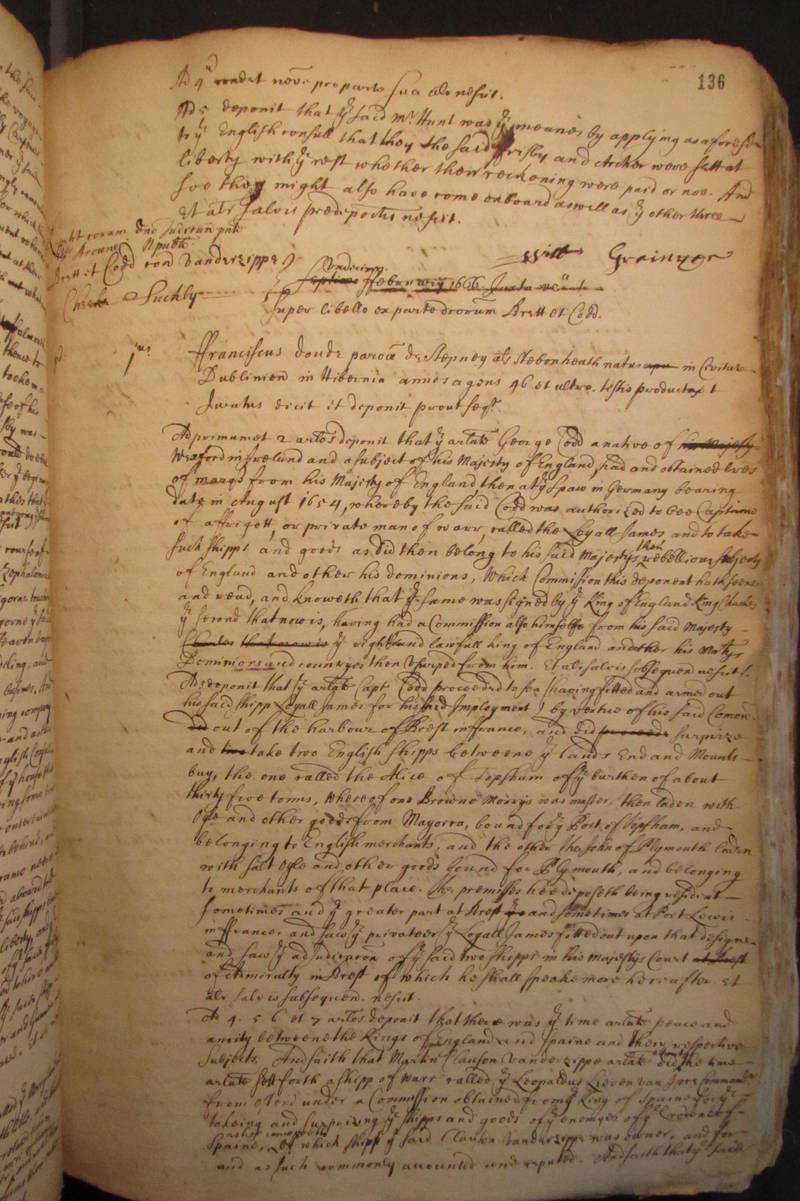 136
Ad 4 reddit nòve pro parte sua als nescit.
Ad 5 deponit that ye said Mr Hunt was ye meanes by applying as aforesd
to ye English consull that they the said Frisby and Archer were sett at
liberty with ye rest whether their reckoning were paid or noe. And
soe they might also have come onboard aswell as ye other three
Et als salvis predepositis nescit.
Will Grainger
Brett et Codd con Vanderzippe
Suckly
undecimo
septimo ffebruarij 1666
Super libello ex parte drorum Brett et Codd.
1us
ffranciscus Doude parochiæ de Stepney als Stebonheath natus in Civitate
Dublinien in Hibernia annos agens 46 et ultra. testis productus et
Juratus dicit et deponit prout seqr.
Ad primum et 2 artes deponit that ye arlate George Codd a native of his Majesty
Wexford in Ireland and a subject of his Majesty of England, had and obtained lres
of marque from his Majesty of England then at ye Spaw in Germany bearing
date in August 1654, whereby the said Codd was authorized to bee Captaine
of a ffrigott, or private man of warr, called the Loyall James, and to take
such shipps and goods as did then belong to his said Majestys then rebellious subjects
of England and other his dominions, Which Commission this deponent hath seene
and read, and knoweth that ye same was signed by ye King of England King Charles
ye second that now is, having had a Commission also himselfe from his said Majesty
Charles that now is ye right and lawfull king of England and other his Matys
Dominions and countryes then Usurped from him. Et als salvis subsequen nescit.
Ad 3 deponit that ye arlate Capt Codd proceeded to sea (having fitted and armed out
his said shipp Loyall James for his said Imployment) by vertue of his said Comon
did out of the harbour of Brest in ffrance, and did proceede surprize
and take two English shipps betweene ye lands End and Mounts
bay, the one called the Alice of Topsham of ye burthen of about
thirty five tonns, Whereof one Browne Morrys was master, then laden with
Oyle and other goods from Mayorca, bound for ye Port of Topsham, and
belonging to English merchants, and the other the John of Plymouth laden
with salt Oyle and other goods bound for Plymouth, and belonging
to merchants of that place. The premisses hee deposeth being resident
sometimes and ye greater part at Brest and sometimes at Port Lewis
in ffrance, and saw ye privateer ye Loyall James fitted out upon that designe
and saw ye adjudicacon of ye said two shipps in his Majestys Court at Brest
of Admiralty in Brest of which he shall speake more hereafter. Et
als salvis subsequen. nescit.
Ad 4. 5 6 et 7 artes deponit that there was ye time arlate peace and
amity betweene the Kings of England and Spaine and their respective
Subjects, And saith that Martin Clauson Vanderzippe arlate did the time
arlate sett forth a shipp of Warr called ye Leopoldus Lieven van
from Ostend under a Commission obtained from ye King of Spaine for ye
takeing and surprizing ye shipps and goods of ye enemyes of ye Crowne of
Spaine, of which shipp ye said Clauson Vanderzippe was owner, and for
and as such commonly accounted and reputed. And saith that ye said